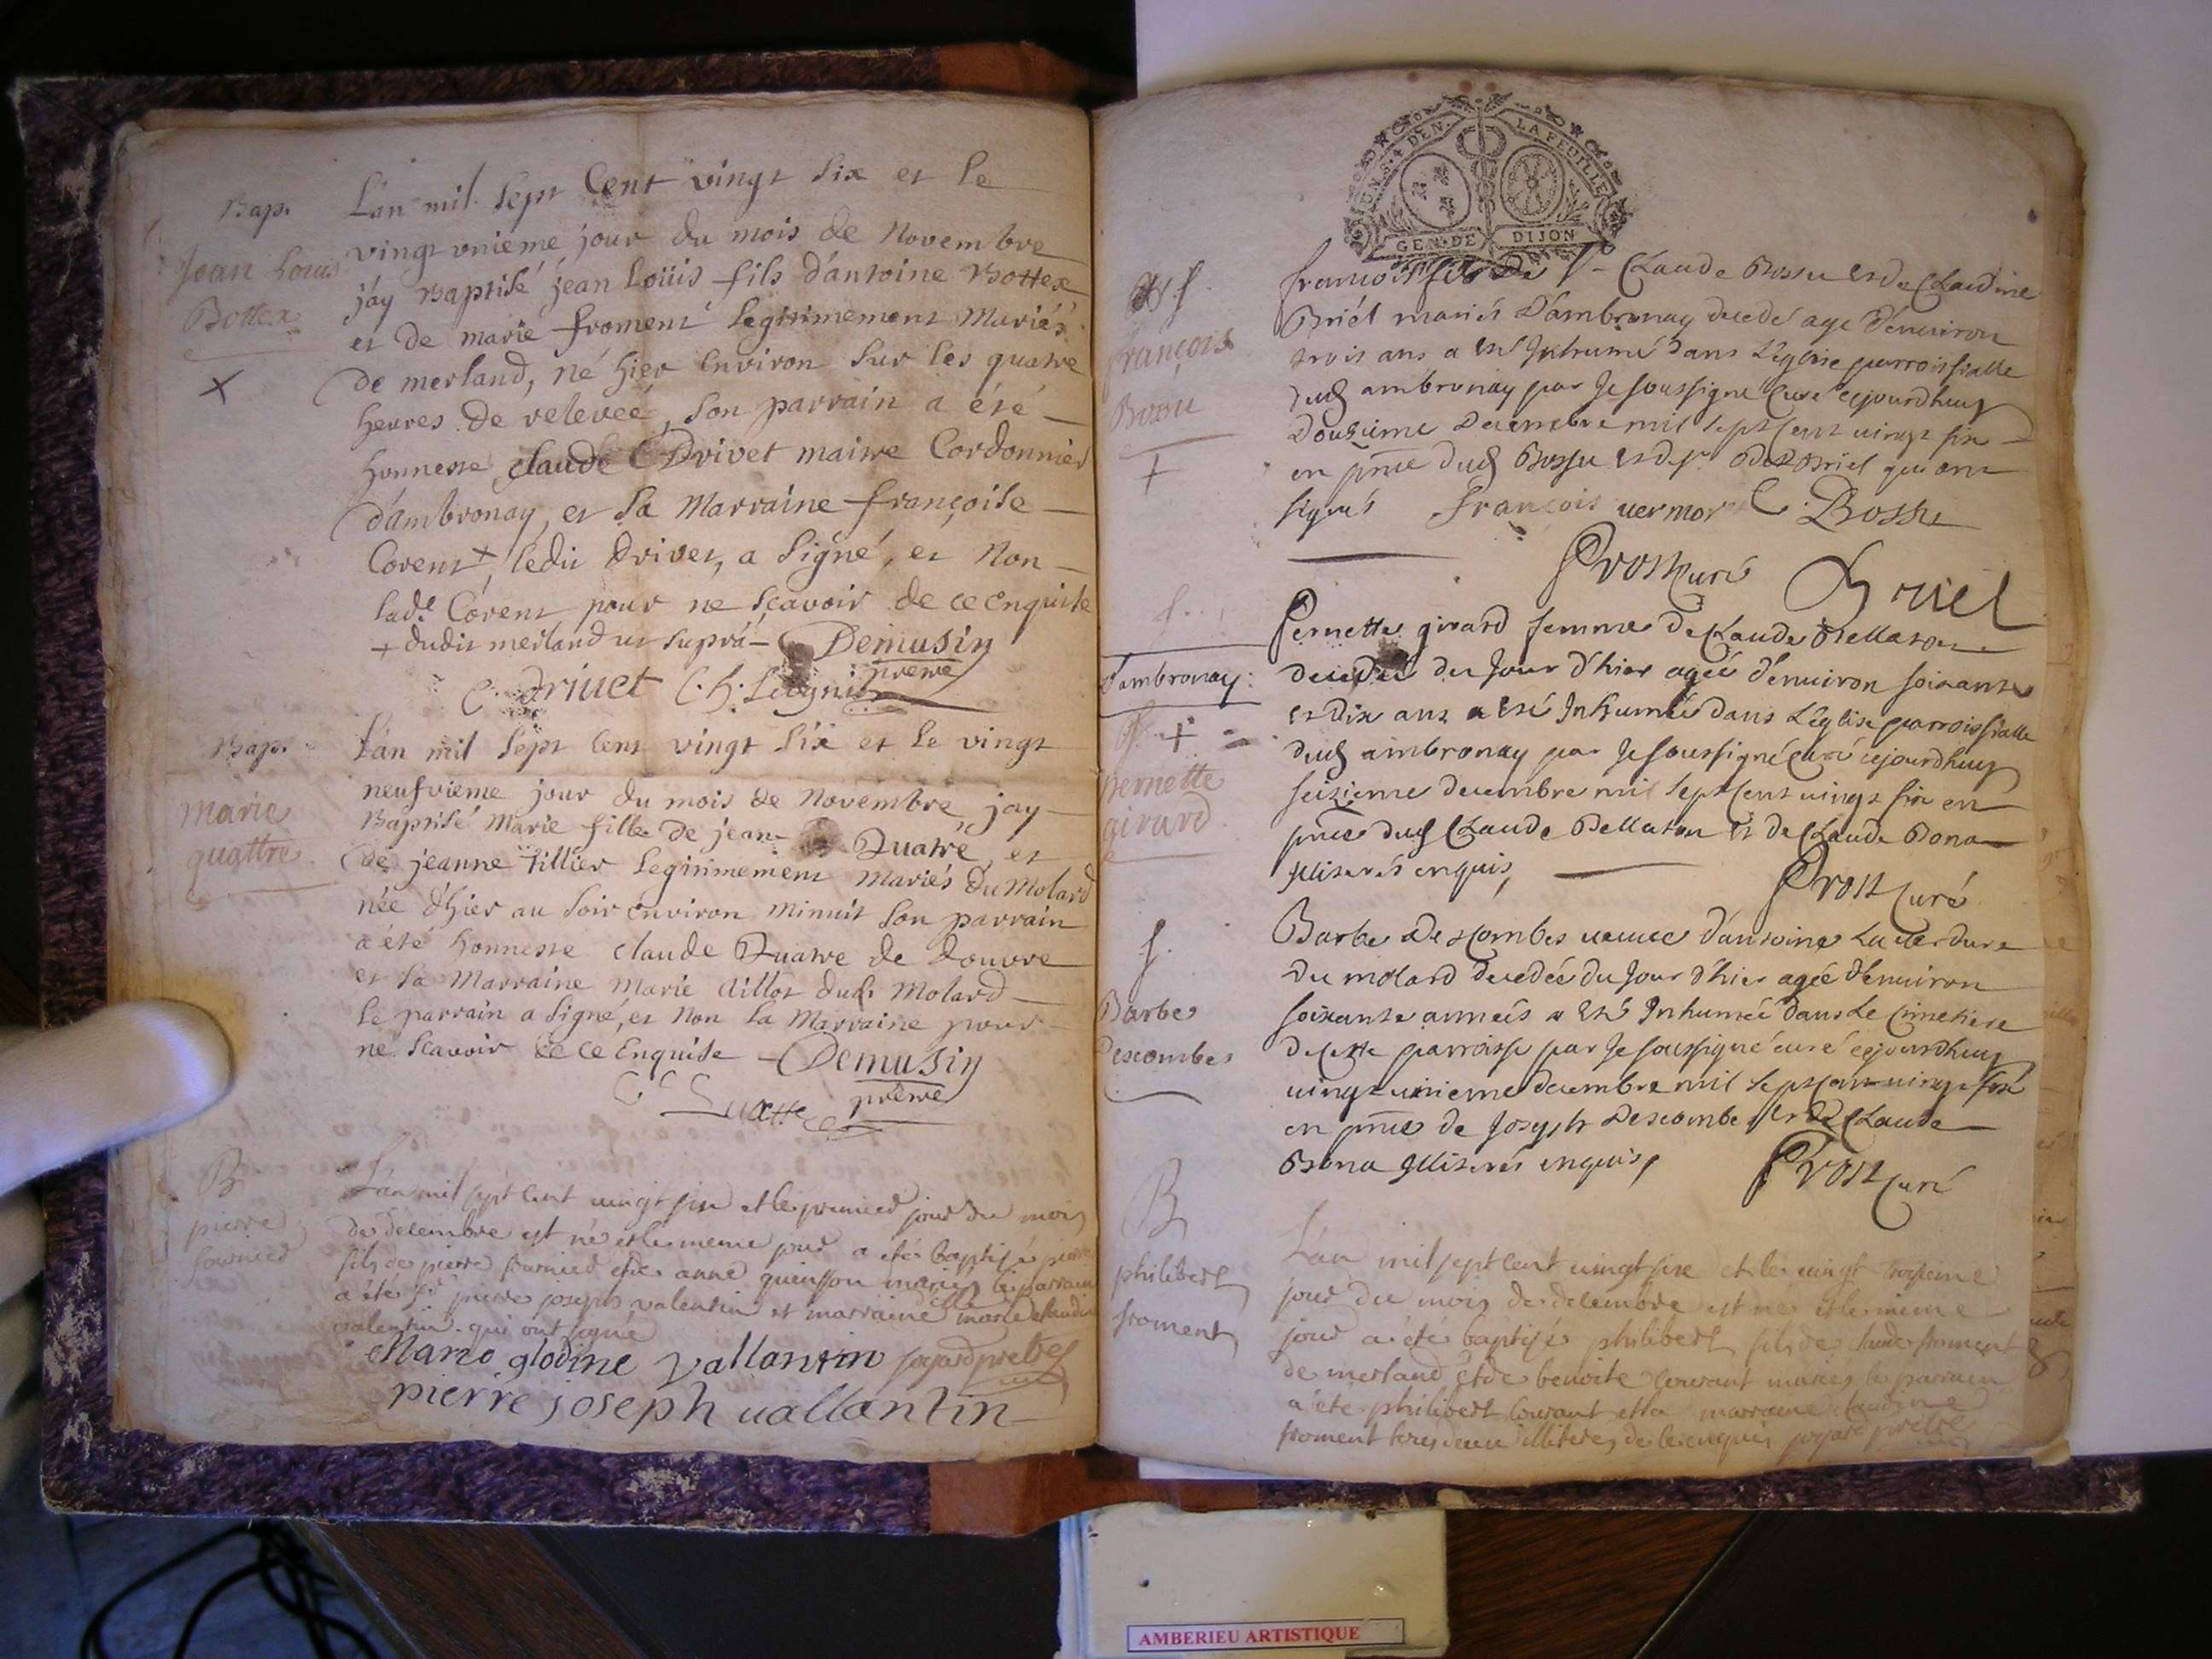 Bap.
Jean Louis
Bottex
L'an mil sept Cent vingt six et le
vingt unieme jour du mois de Novembre
j'ay Baptisé jean Loüis fils d'antoine Bottex
et de marie froment legitimement Mariés
de merland, né hier environ sur les quatre
heures de relevée, son parrain a été
honneste claude Drivet maitre Cordonnier
d'ambronay, et sa Marraine françoise
Corent + ledit drivet, a signé, et Non
lade Corent pour ne sçavoir de ce enquise
+ dudit merland ut supra Demusin
prêtre
C. drivet
Bap.
marie
quattre
L'an mil sept cent vingt six et le vingt
neufvieme jour du mois de Novembre jay
Baptisé Marie fille de jean Quatre, et
de jeanne tillier legitimement mariés du Molard
née d'hier au soir environ minuit son parrain
a été honneste claude Quatre de douvre
et sa Marraine Marie dudt Molard
le parrain a signé, et Non la Marraine pour
ne sçavoir de ce Enquise Demusin
prêtre
B
pierre
fournied
L'an mil sept cent vingt six et le premied jour du mois
de decembre est né et le meme jour a été baptisé pierre
fils de pierre fournied et de anne mariés le parrain
a été pierre joseph valentin et marraine marie claudine
valentin qui ont signé
Marie glodine vallantin prettre
pierre joseph vallantin
GEN. DE DIJON
LA FEUILLE
françois
Bossu
françois fils de Sr Claude Bossu et de Claudine
Briel mariés d'ambronay decedé agé d'environ
trois ans a esté Inhumé dans l'eglise parroissialle
dud ambronay par Je soussigné Curé cejourdhuy
Douzieme Decembre mil sept cent vingt six
en pnce dud Bossu et de Sr Briel qui ont
signés françois vermor C. Bossu
Prost curé Briel
f.
d'ambronay
+
pernette
girard
Pernette girard femme de Claude Bellaton
decedée du Jour d'hier agée d'environ soixante
et dix ans a esté Inhumée dans l'eglise parroissialle
dud ambronay par Je soussigné Curé cejourdhuy
seizieme decembre mil sept cent vingt six en
pnce dud Claude Bellaton et de Claude Bona
Illiterés enquis,
Prost curé
f.
Barbe
Descombes
Barbe Descombes veuve d'antoine Laverdure
Du molard decedée du Jour d'hier agée d'environ
soixante années a esté Inhumée dans le Cimetiere
de cette parroisse par Je soussigné curé cejourdhuy
vingt unieme decembre mil sept cent vingt six
en pnce de Joseph Descombe et de Claude
Bona Illiterés enquis,
Prost curé
B
philibert
froment
L'an mil sept cent vingt six et le vingt troisieme
jour du mois de decembre est né et le meme
jour a été baptisé philibert fils de claude froment
de merland et de benoite Courant mariés le parrain
a été philibert Courant et la marraine claudine
froment tous deux illiteres de ce enquis prettre
AMBERIEU ARTISTIQUE